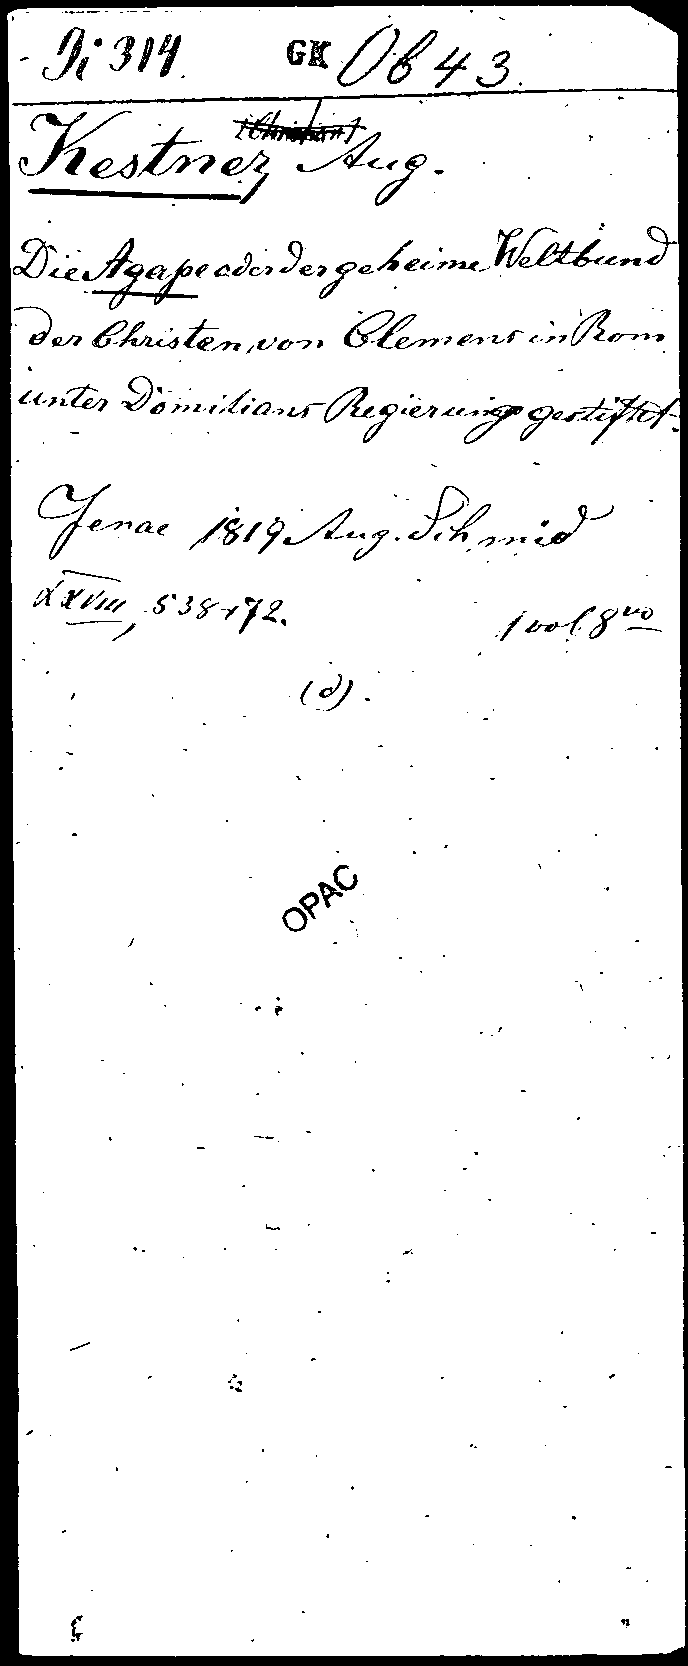 Di 314 GK Ob 43.
(Christian)
Kestner, Aug.
Die Agape oder der geheime Weltbund
der Christen, von Clemens in Rom
unter Domitians Regierung gestiftet.
Jenae 1819 Aug. Schmid
XXVIII, 538+72. 1 vol 8vo
(d).
OPAC